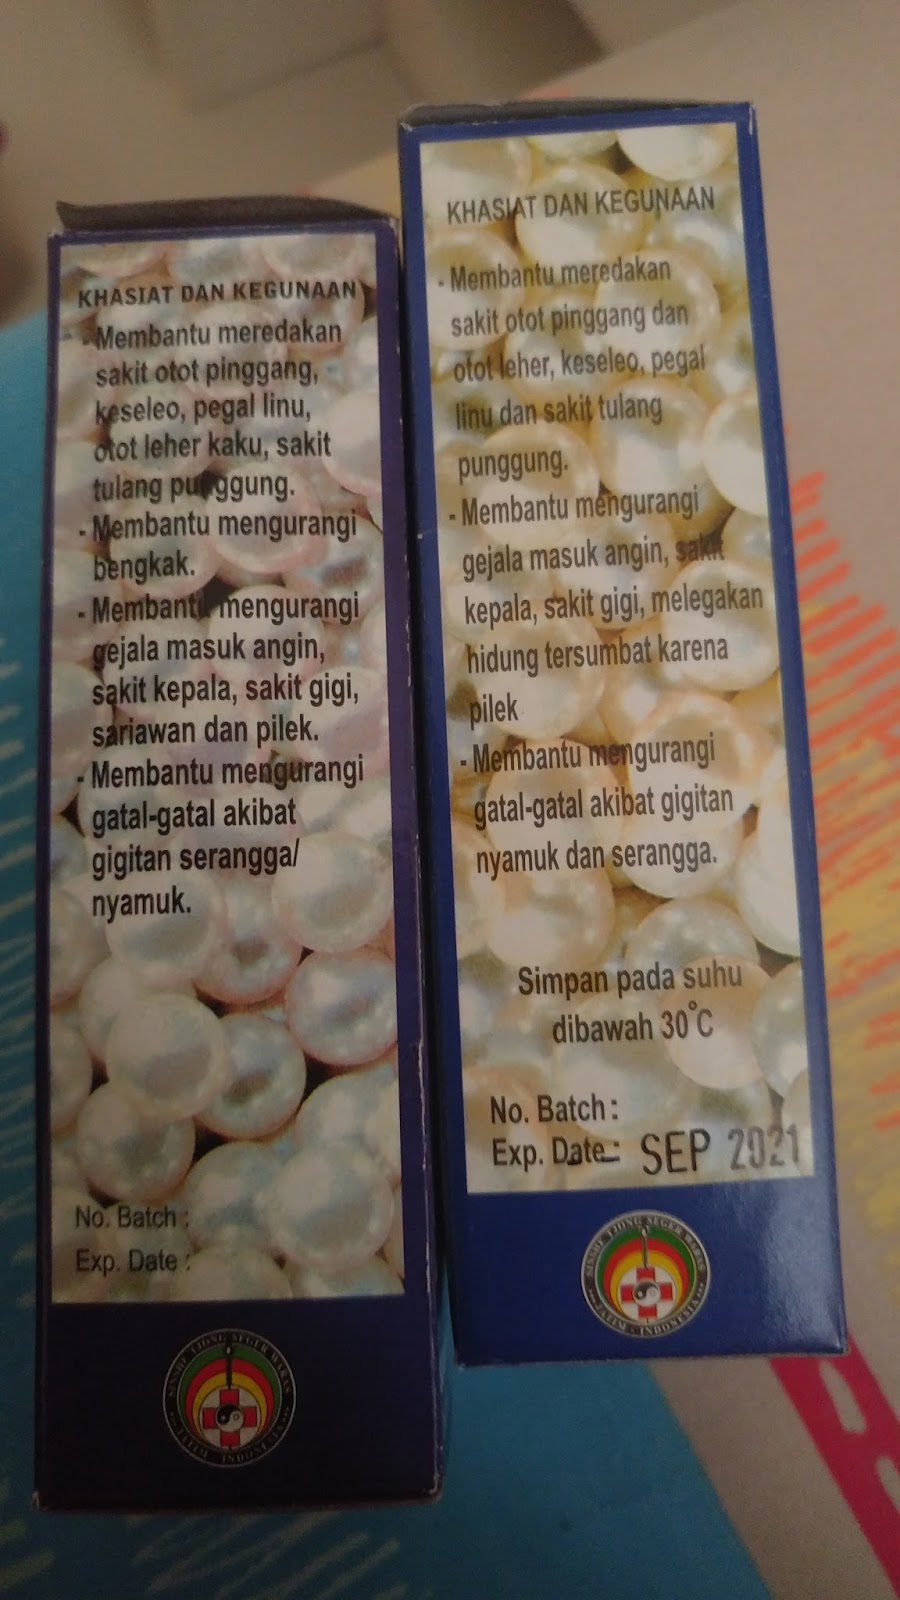 KHASIAT DAN KEGUNAAN
- Membantu meredakan
sakit otot pinggang,
keseleo, pegal linu,
otot leher kaku, sakit
tulang punggung.
- Membantu mengurangi
bengkak.
- Membantu mengurangi
gejala masuk angin,
sakit kepala, sakit gigi,
sariawan dan pilek.
- Membantu mengurangi
gatal-gatal akibat
gigitan serangga/
nyamuk.
No. Batch :
Exp. Date :
SINSHE TJONG SEGER WARAS
INDONESIA
KHASIAT DAN KEGUNAAN
- Membantu meredakan
sakit otot pinggang dan
otot leher, keseleo, pegal
linu dan sakit tulang
punggung.
- Membantu mengurangi
gejala masuk angin, sakit
kepala, sakit gigi, melegakan
hidung tersumbat karena
pilek
- Membantu mengurangi
gatal-gatal akibat gigitan
nyamuk dan serangga.
Simpan pada suhu
dibawah 30°C
No. Batch :
Exp. Date : SEP 2021
SINSHE TJONG SEGER WARAS
INDONESIA